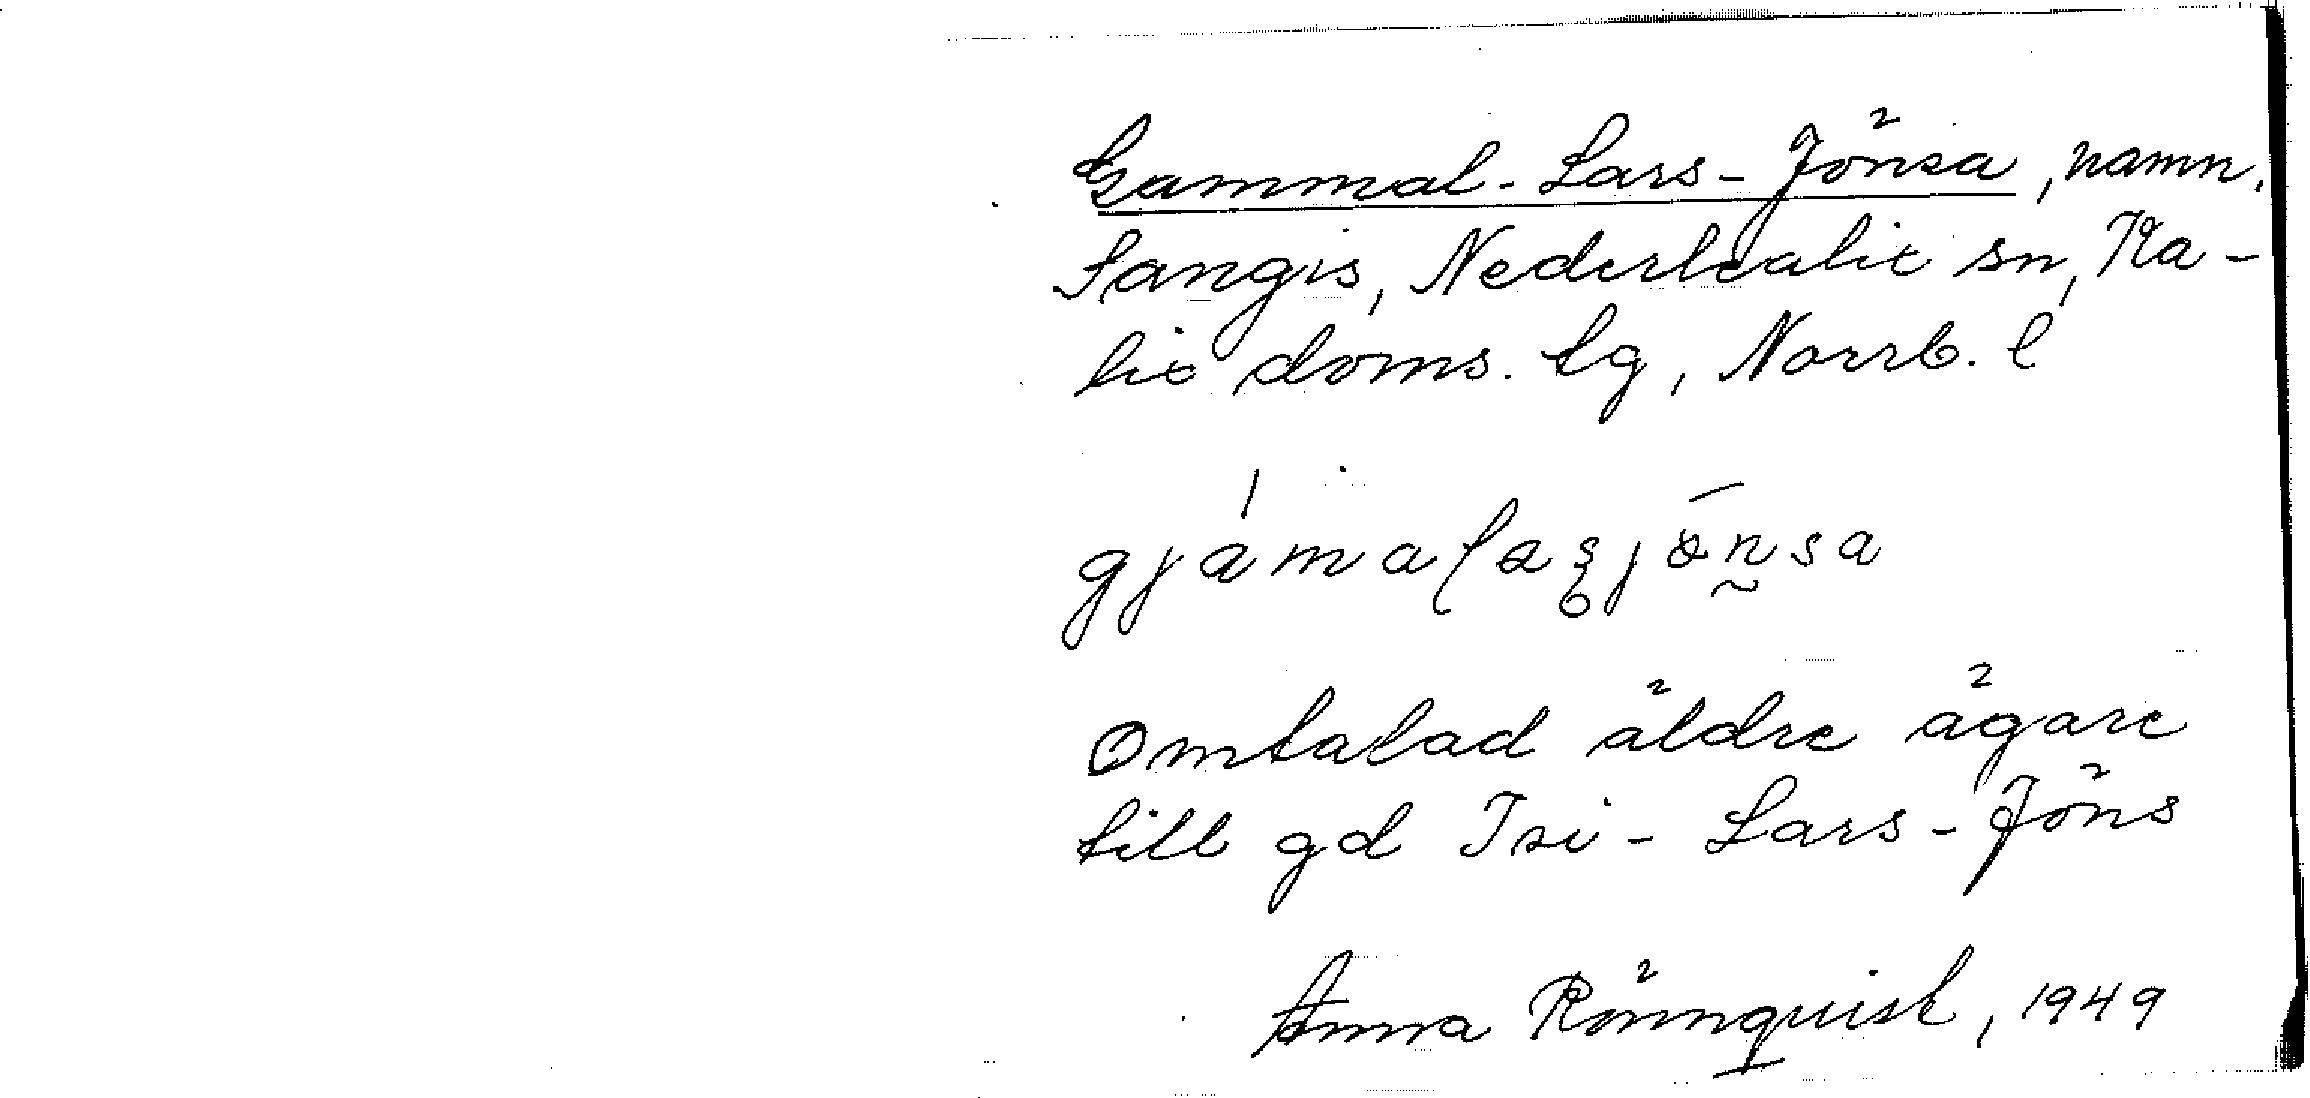 Gammal-Lars-Jönsa, namn.
Sangis, Nederkalix sn, Ka-
lix doms. tg, Norrb. l
Omtalad äldre ägare
till gd Isi-Lars-Jöns
Anna Rönnquist, 1949